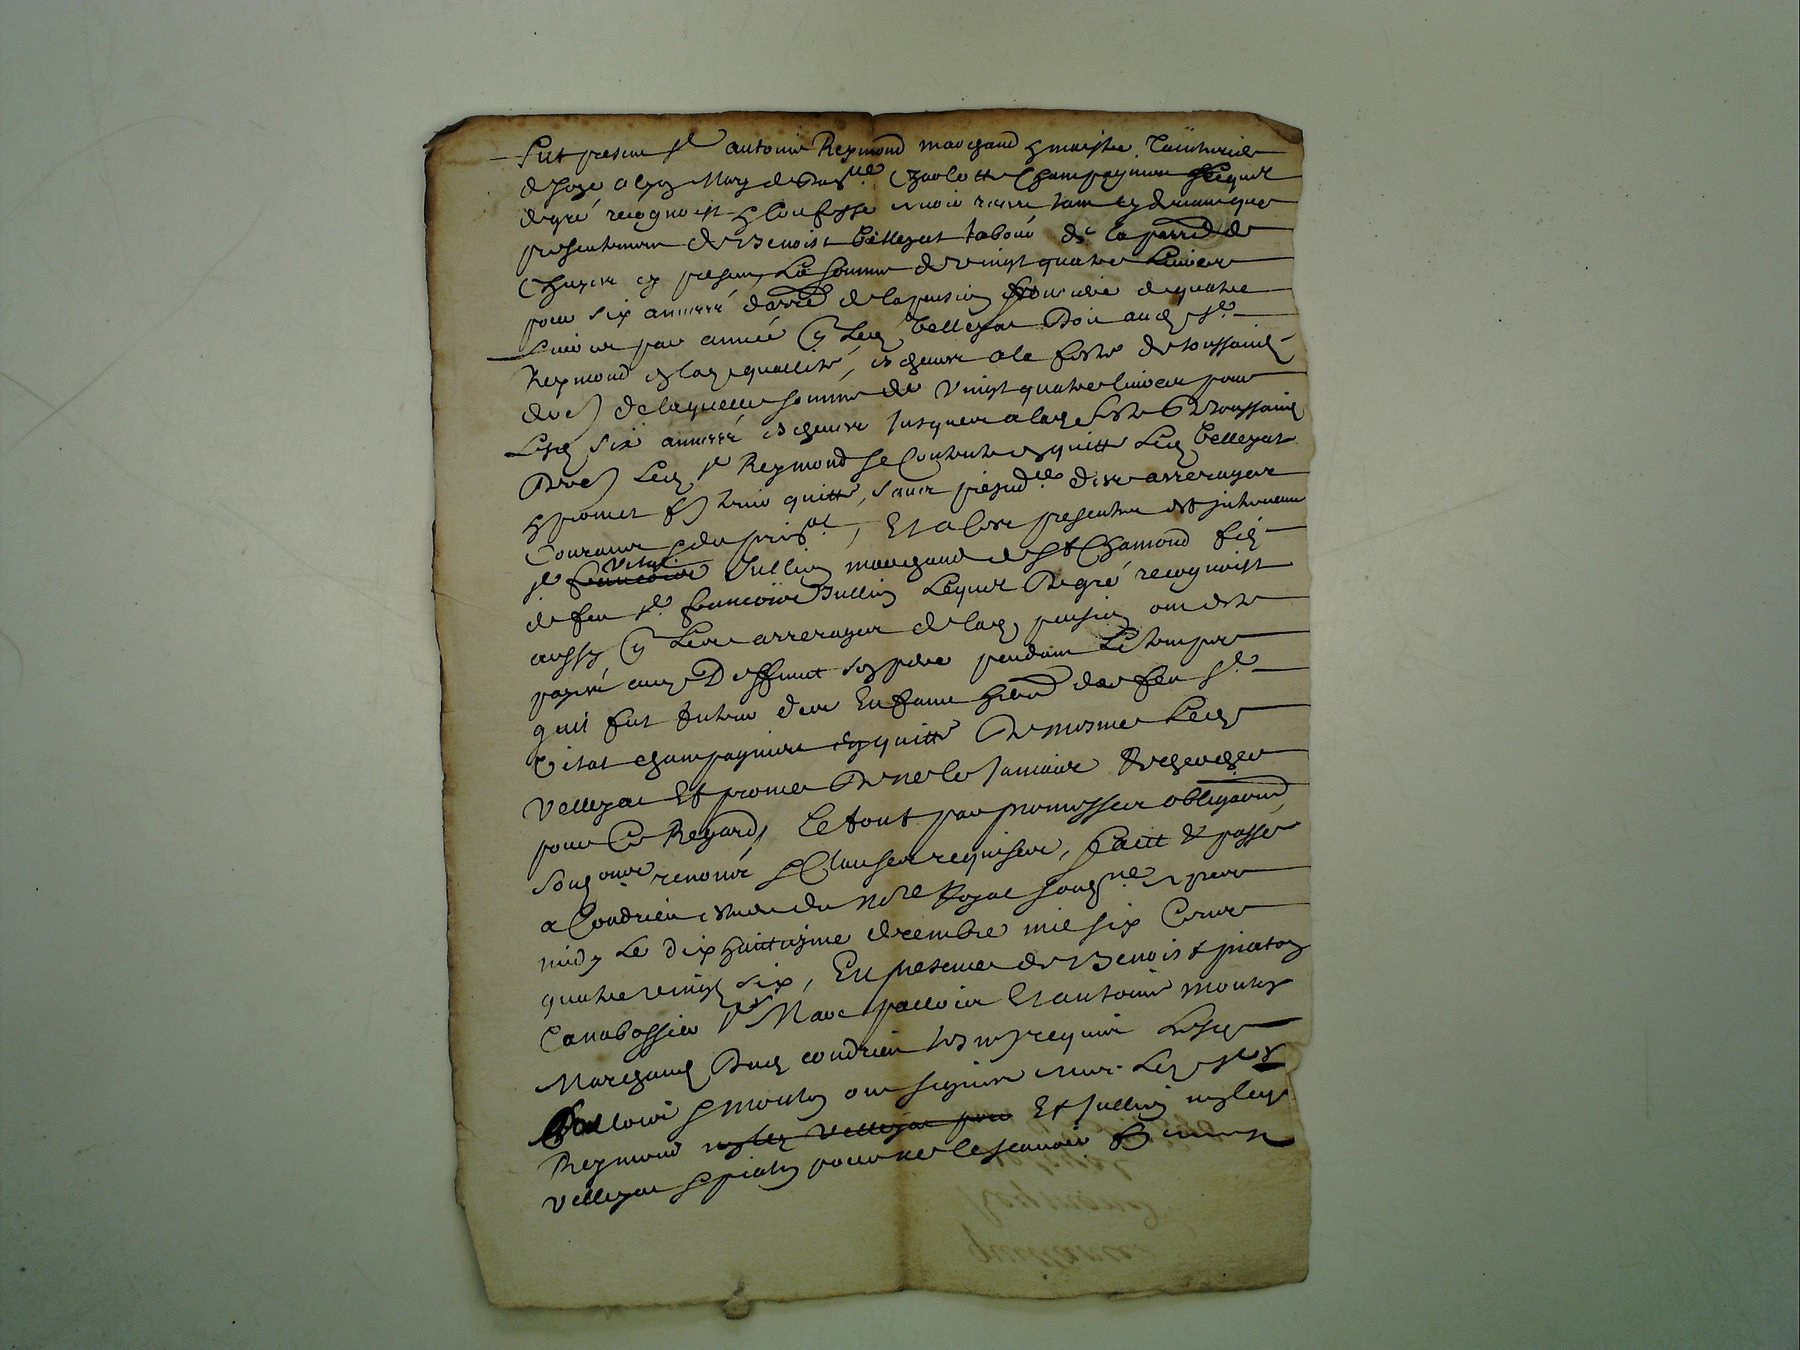 Fut present sr antoine Reymond marchand & maistre Tainturier
de soye a lyon Mary de damlle Charlotte Champagnieu Lequel
de gré recognoist & confesse avoir receu tant cy devant que
presentement de Benoist Vellezat labour de la parre de
Chuzin cy present La Somme de vingt quatre Livres
pour six années darre de la pension fonciere de quatre
Livres par année que Led Vellezat Doit aud sr
Reymond en lad qualité, escheus a la feste de toussainct
der de laquelle somme de vingt quatre livres pour
Lesd six années escheues jusques a lad feste de Toussainct
Der Led sr Reymond se contente en quitte Led Vellezat
& promet fe tenir quitte, sans prejudce des arrerages
Courants & du prinpal, Et a ces presentes est intervenu
sr francois Vital Jullien marchand de St Chamond fils
de feu sr francois Jullien Lequel De gré recognoist
aussy que Les arrerages de lad pension ont esté
payés aud Deffunct son pere pendant Le temps
quil fut tuteur des Enfans & heritd de feu sr
Vital champagnieu en quitte De mesme Led
Vellezat Et promet De ne le jamais Rechercher
pour Ce Regard, Le tout par promesses obligaond,
soubzons renonés & Clauses requises, faict & passé
a Condrieu estude du Nore Royal soubzné apres
midy Le dix huictiesme decembre mil six Cents
quatre vingt six, En presence de Benoist piaton
Canabassier sr Marc palloüis Et antoine mouton
Marchand Dud condrieu tesm requis Lesd
palloüis & mouton ont signé avec Led sr
Reymond non led Vellezat pour Et Jullien non led
Vellezat & piaton pour ne le scavoir de ce enquis